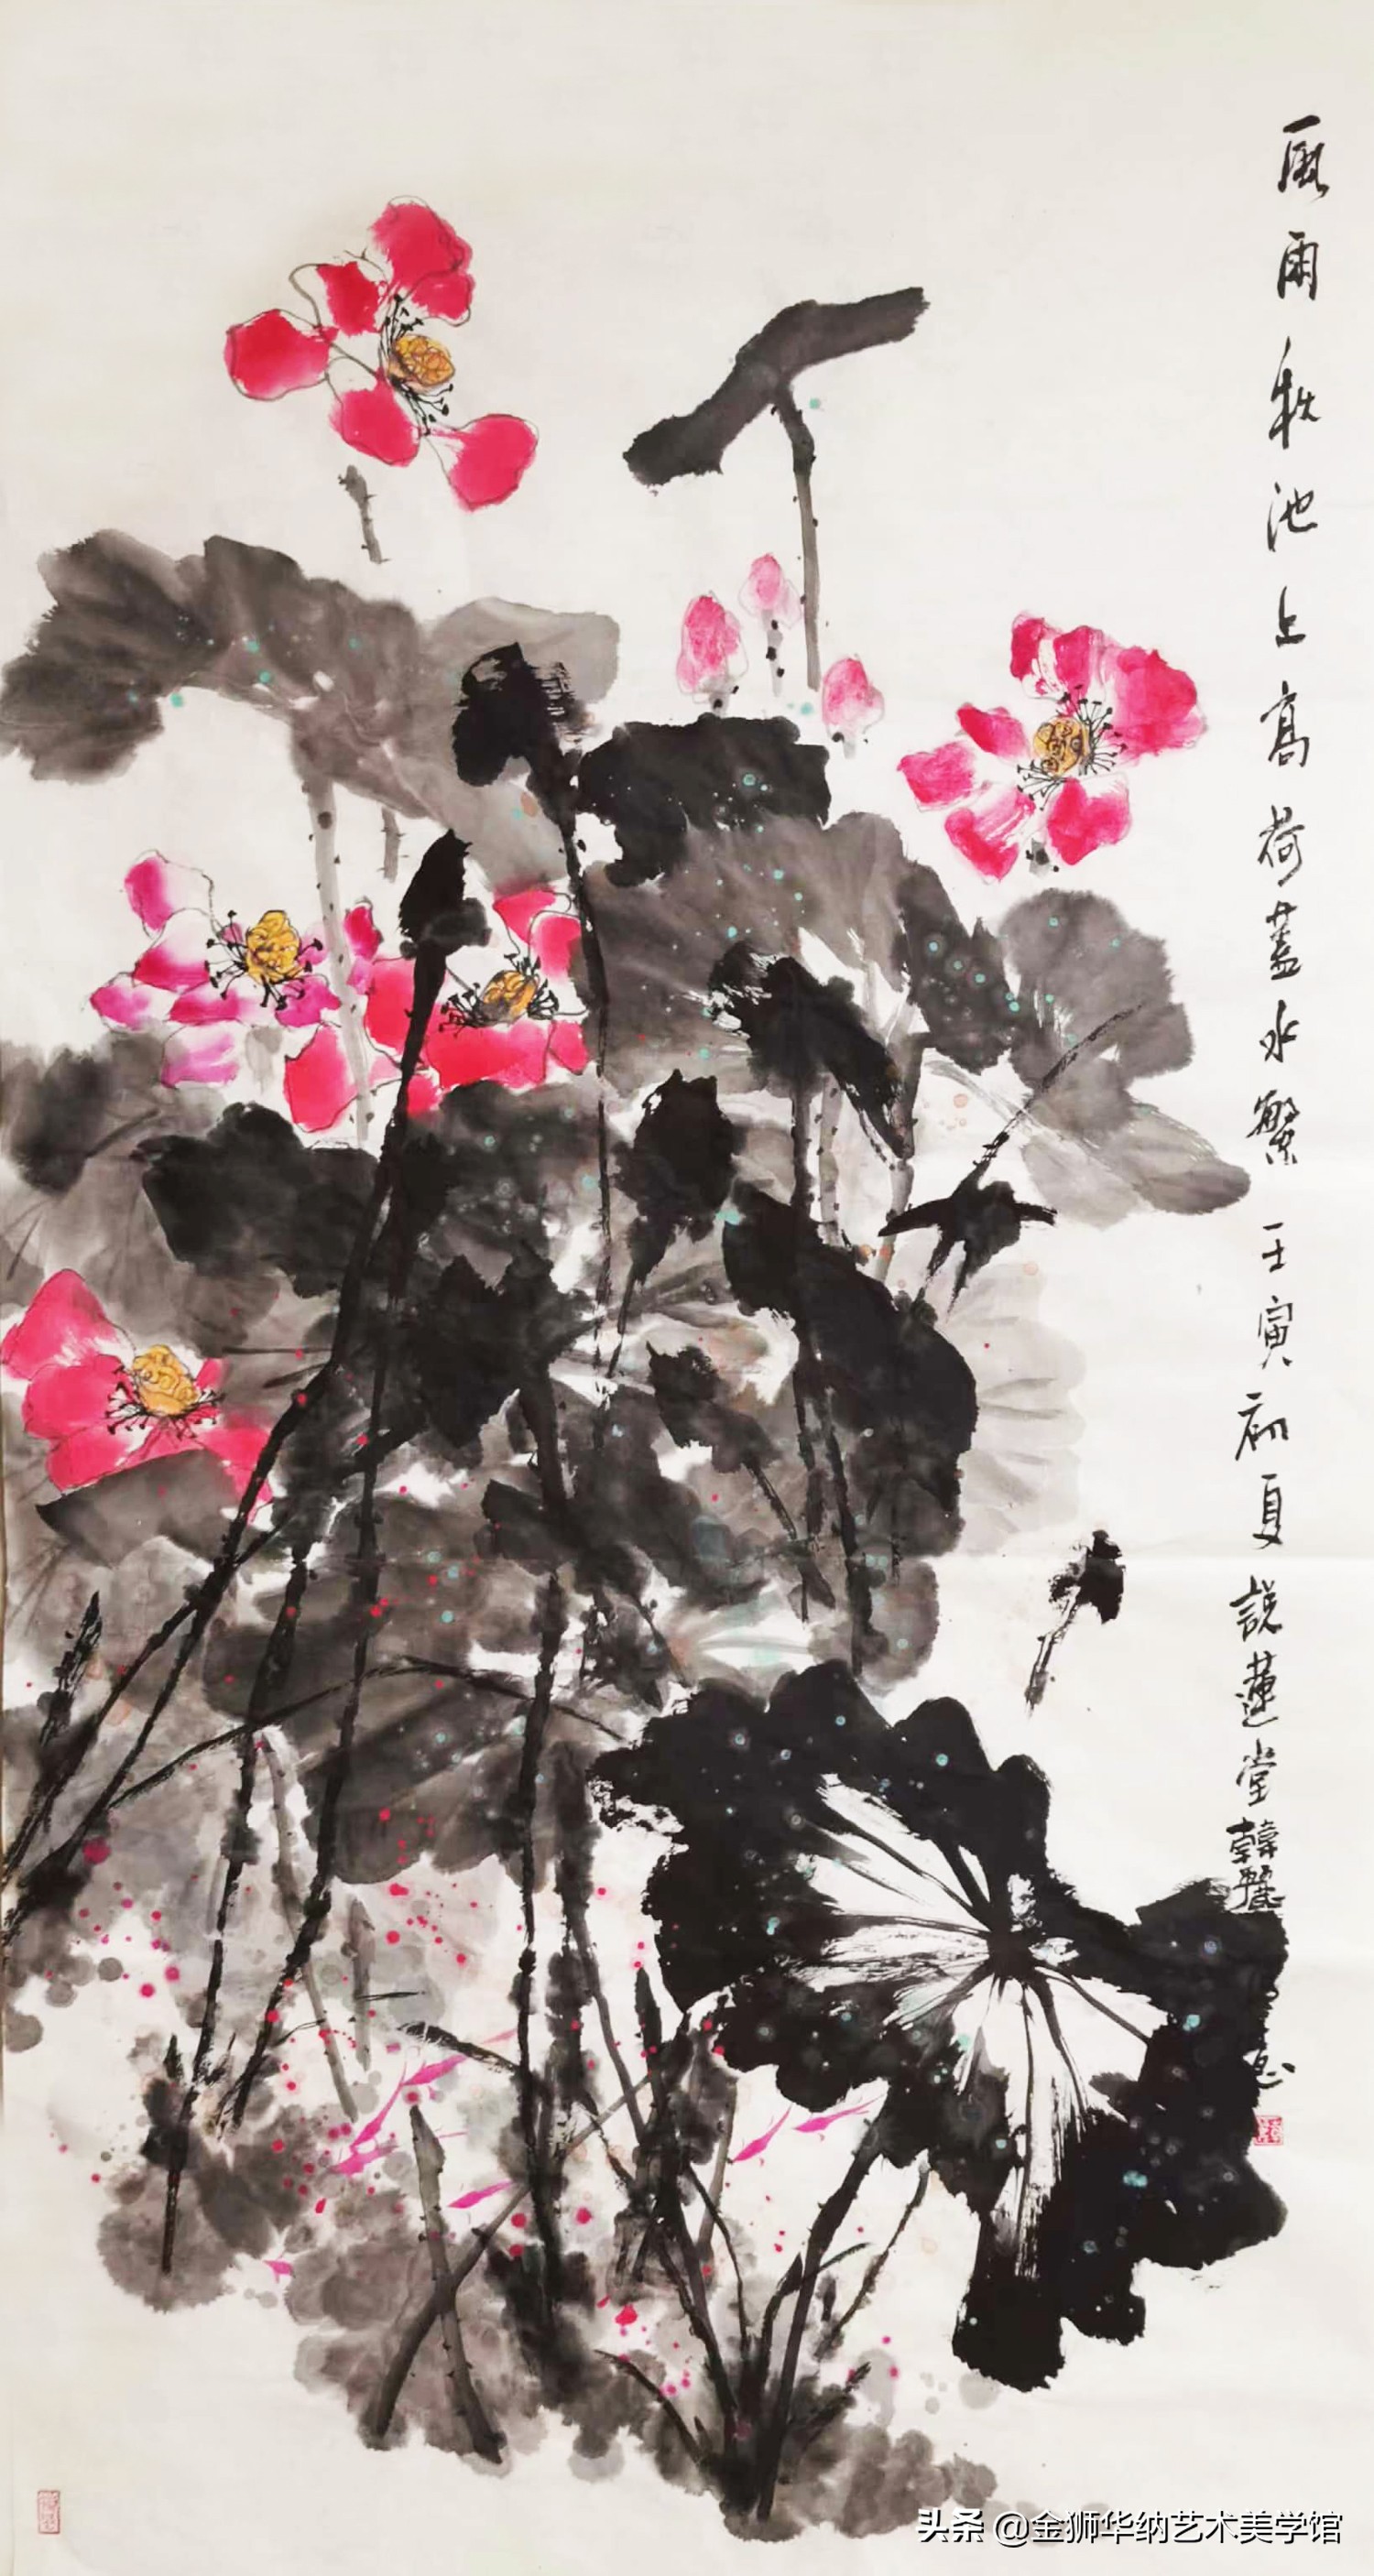 風雨秋池上高荷蓋水繁 壬寅初夏 說蓮堂韓麗
头条 @金狮华纳艺术美学馆